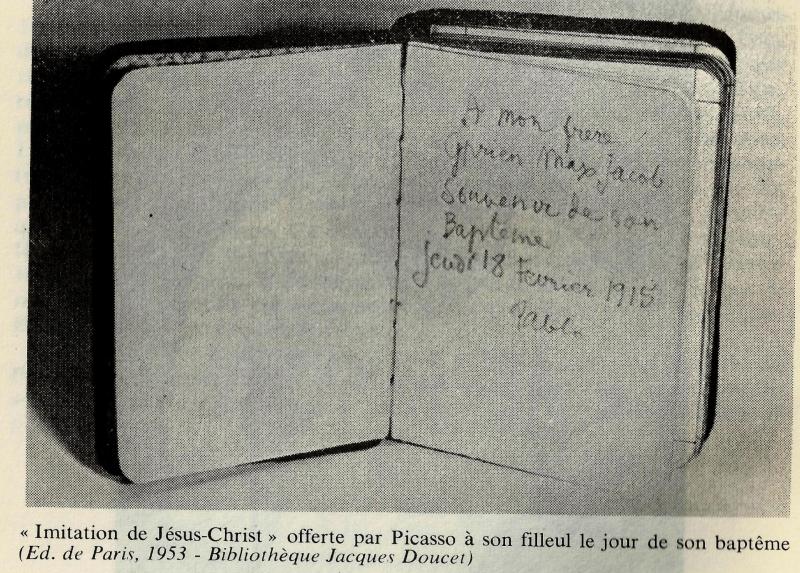 A mon frere
Cyprien Max Jacob
Souvenir de son
Baptême
Jeudi 18 Fevrier 1915
Pablo
« Imitation de Jésus-Christ » offerte par Picasso à son filleul le jour de son baptême
(Ed. de Paris, 1953 - Bibliothèque Jacques Doucet)